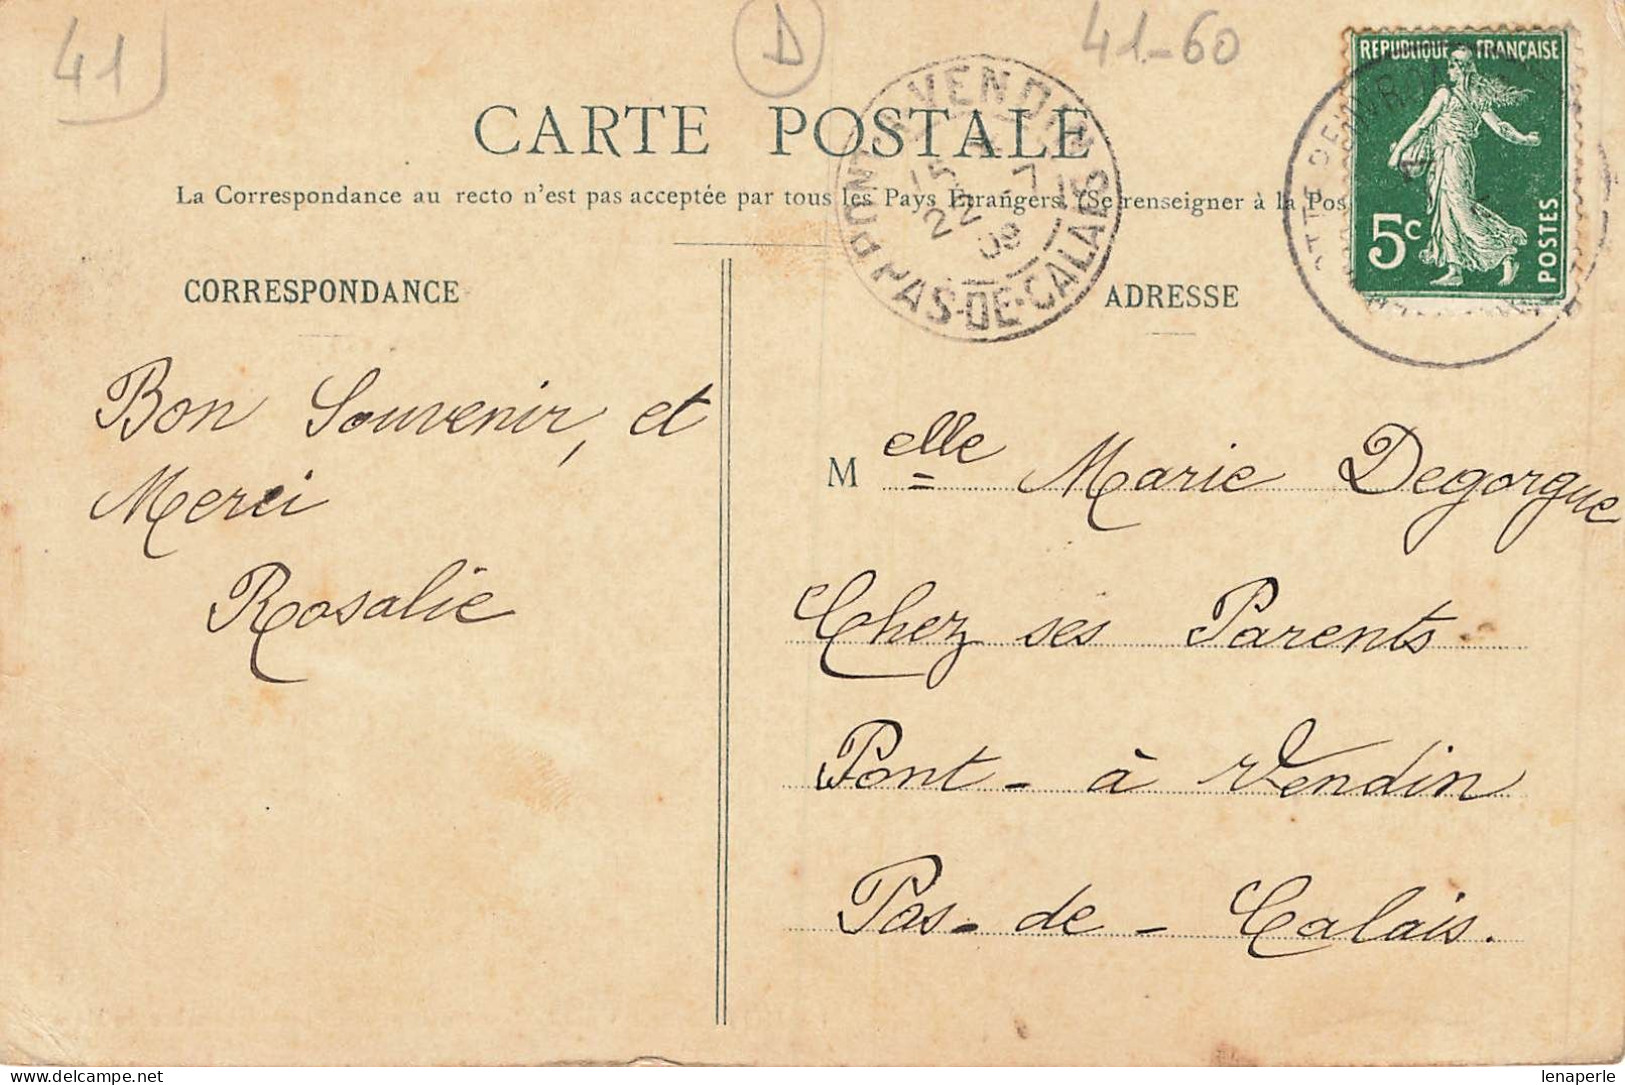 41
D
41-60
REPUBLIQUE FRANÇAISE
5c
POSTES
CARTE POSTALE
La Correspondance au recto n'est pas acceptée par tous les Pays Étrangers. (Se renseigner à la Pos
PONT-A-VENDIN
15
22 -7
09
PAS-DE-CALAIS
CORRESPONDANCE
ADRESSE
Bon Souvenir, et
Merci
Rosalie
M elle Marie Degorgue
Chez ses Parents
Pont-à Vendin
Pas-de-Calais.
lenaperle